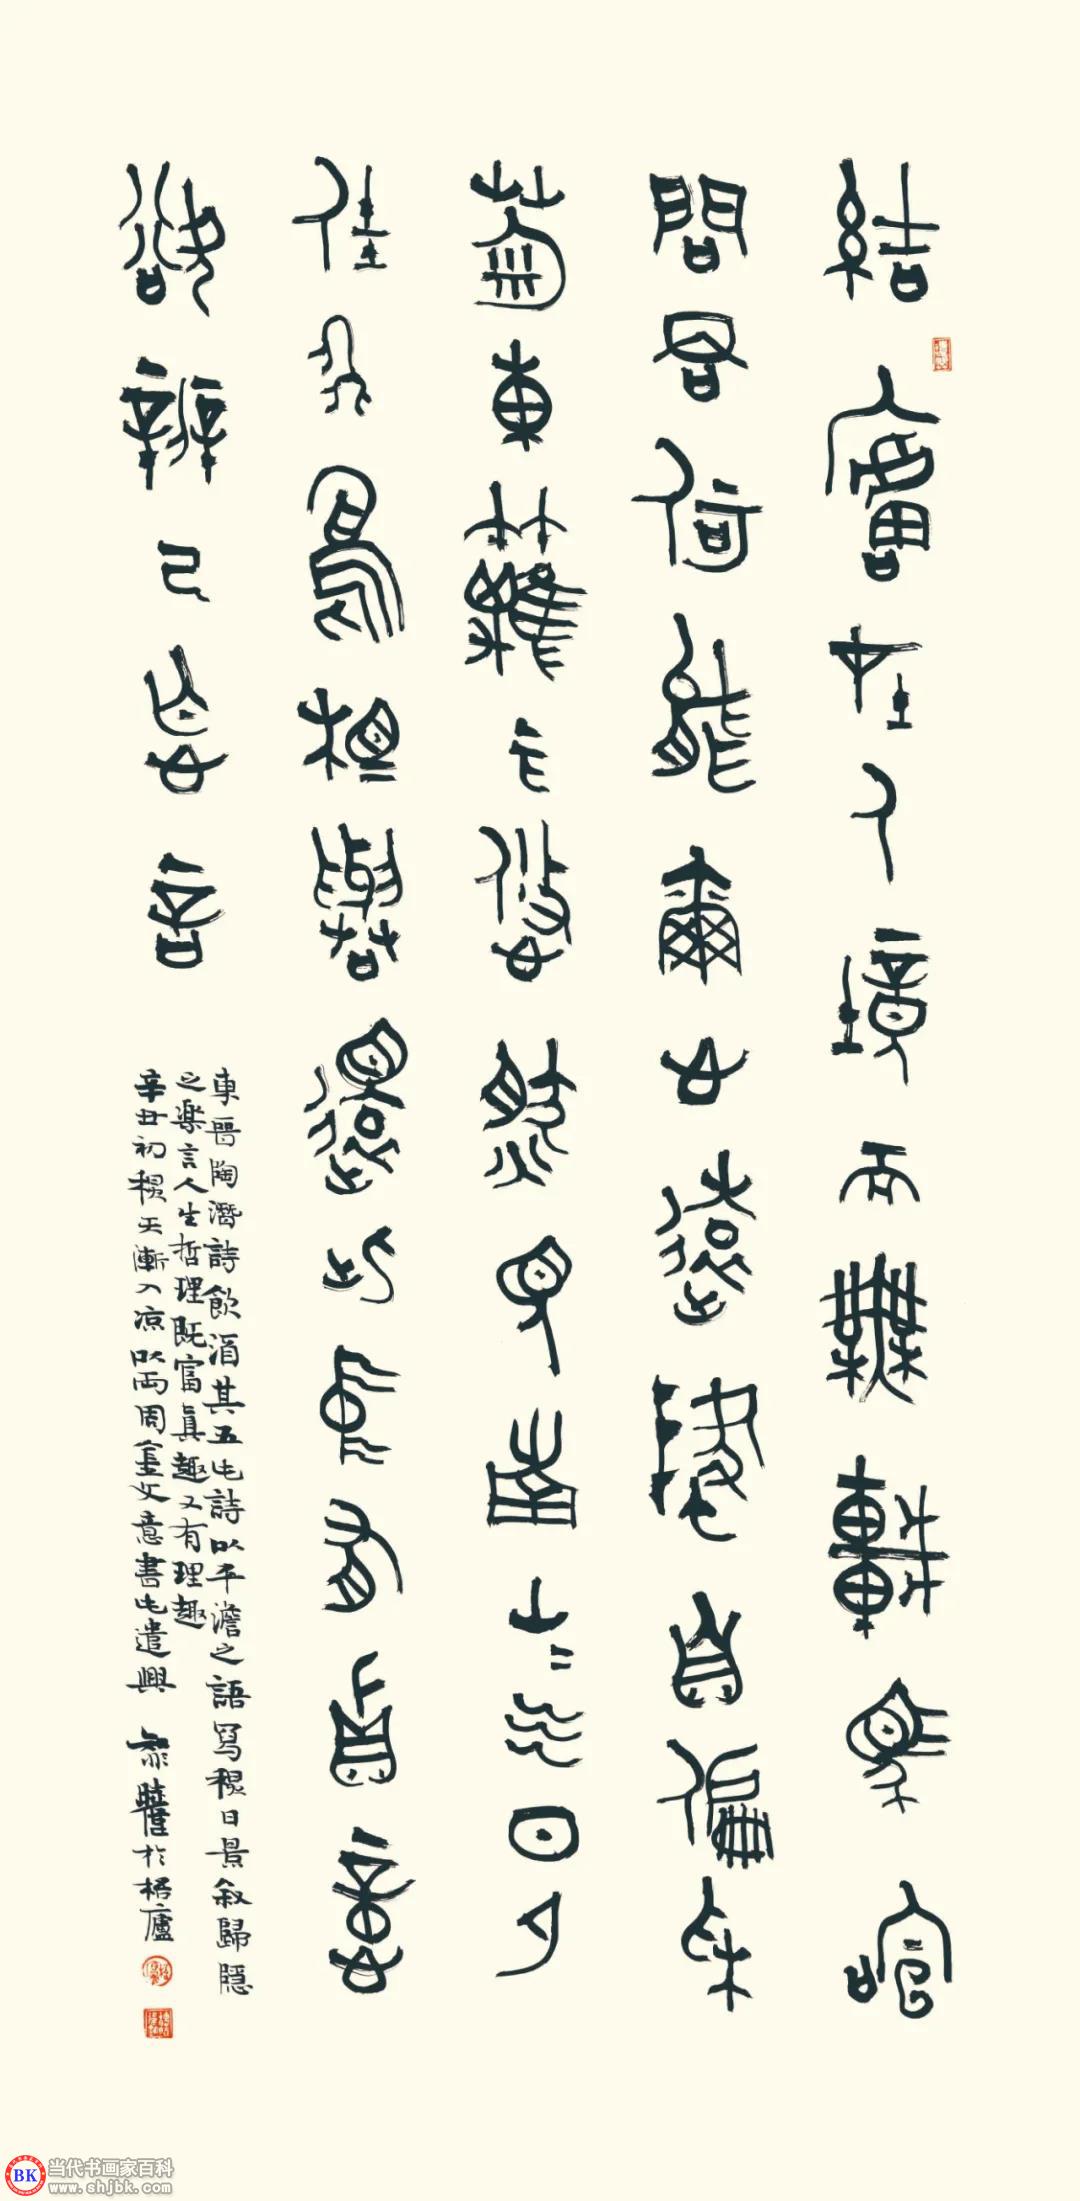 結廬在人境而無車馬喧
問君何能爾心遠地自偏采
菊東籬下悠然見南山〻气日夕
佳飛鳥相與還此中有真意
欲辨已忘言
東晉陶潛詩飲酒其五也詩以平澹之語寫穐日景敘歸隱
之樂言人生哲理既富真趣又有理趣
辛丑初穐天漸入凉以兩周金文意書也遣興 於廬
BK 当代书画家百科
www.shjbk.com